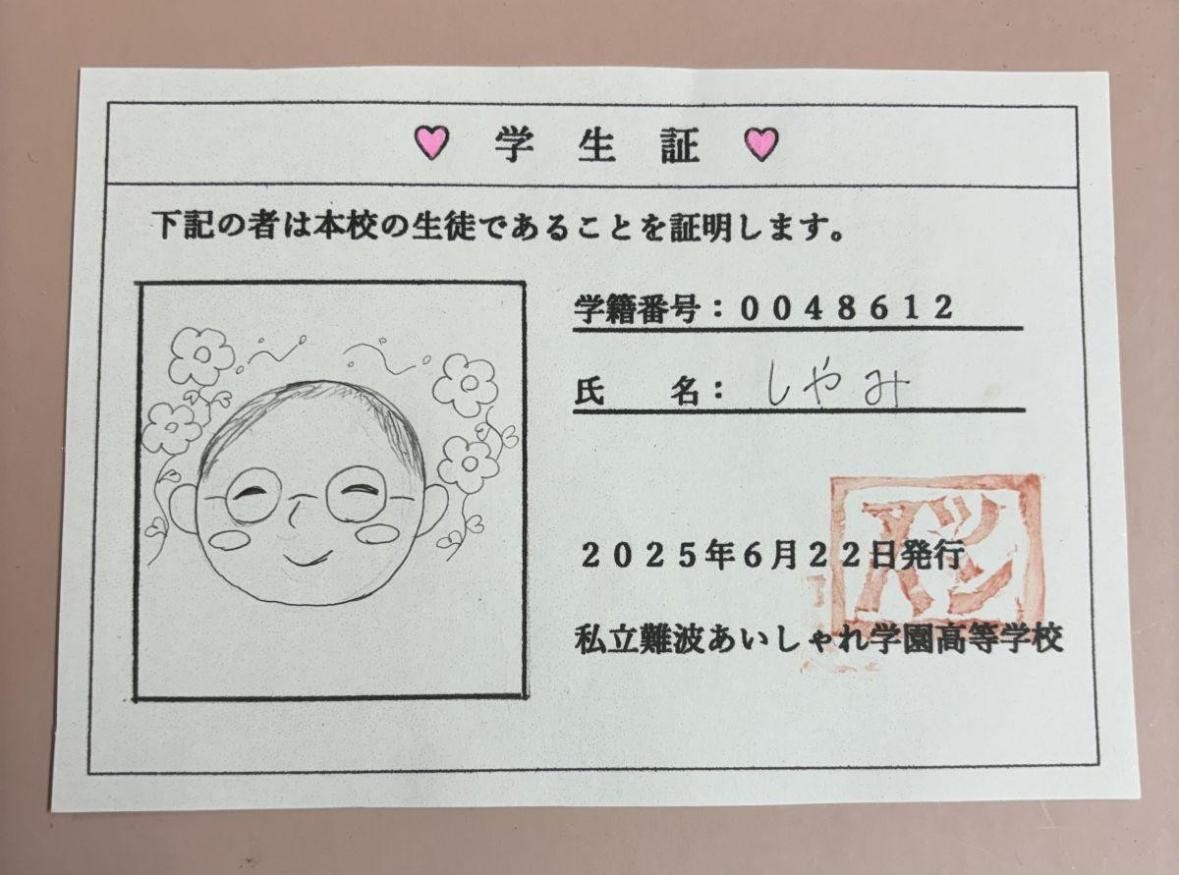 ♥ 学生証 ♥
下記の者は本校の生徒であることを証明します。
学籍番号：００４８６１２
氏　　名： しゃみ
２０２５年６月２２日発行
私立難波あいしゃれ学園高等学校